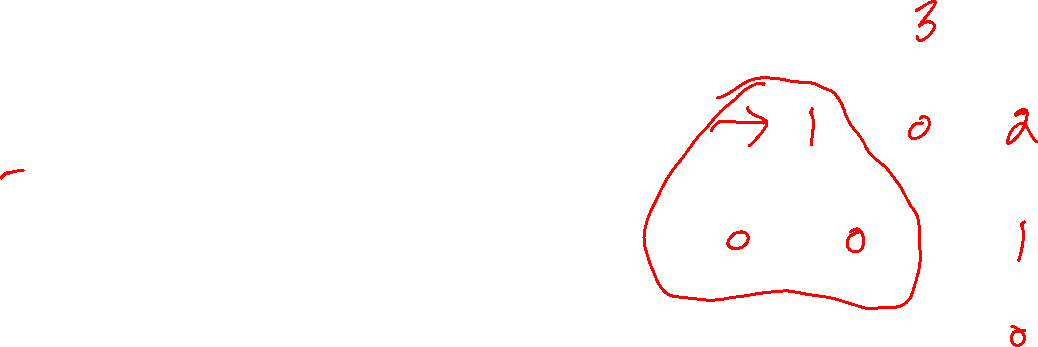 3
→ 1 0 2
0 0 1
0